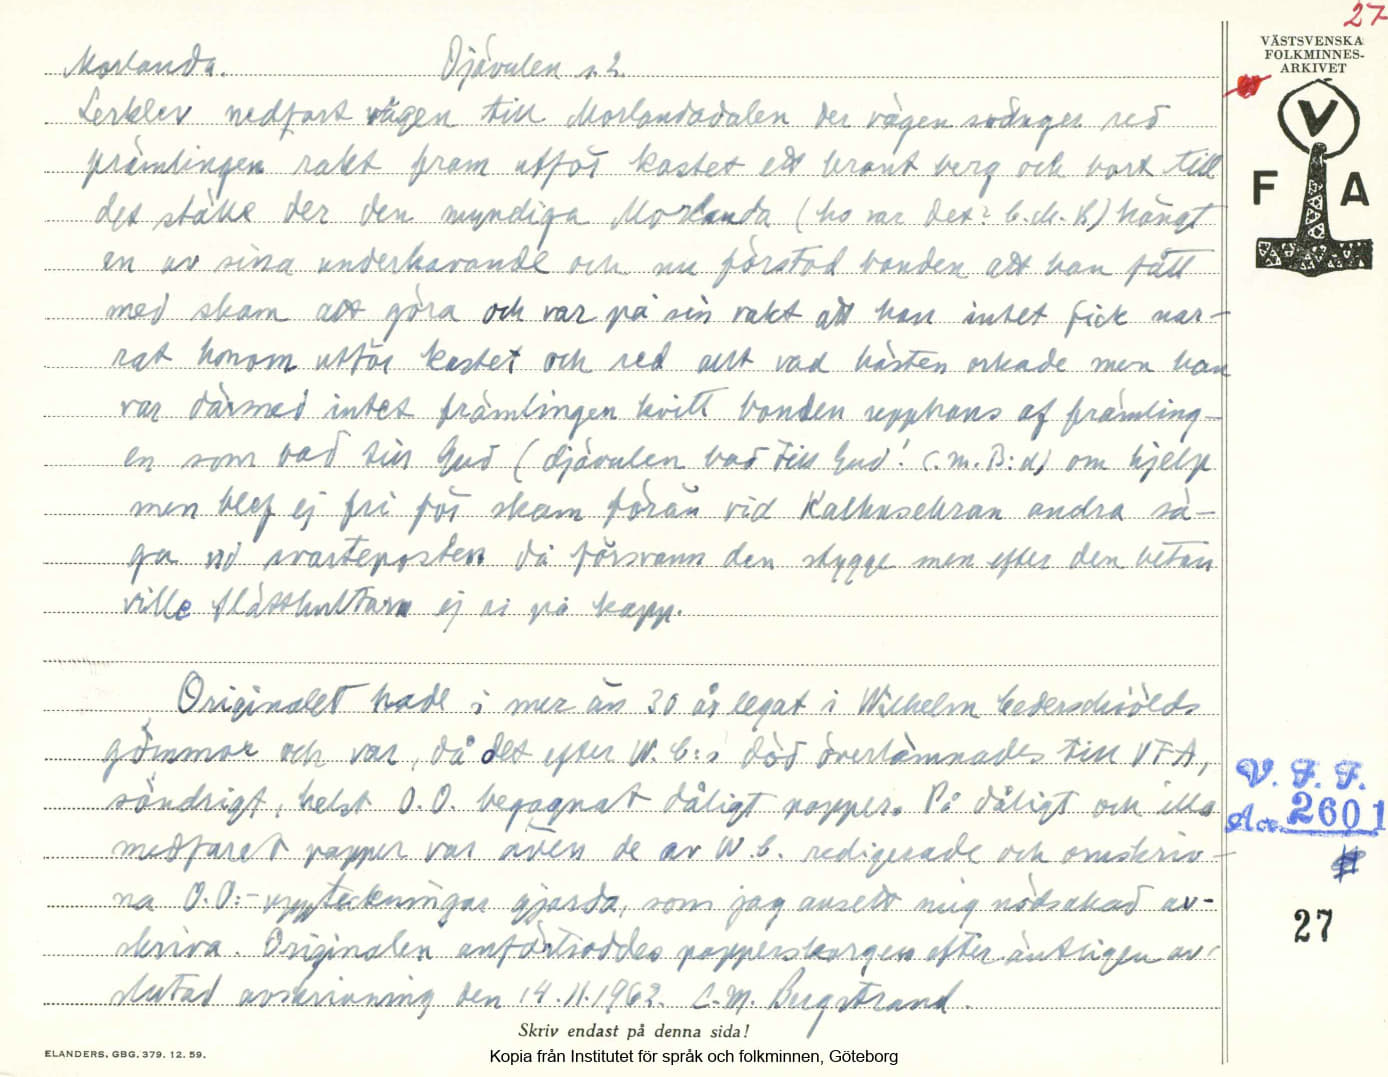 27
VÄSTSVENSKA
FOLKMINNES-
ARKIVET
V
F A
Morlanda. Djävulen s.2.
Lerklev nedfart vägen till Morlandadalen der vägen svänger red
främlingen rakt fram utför kastet ett brant berg och bort till
det ställe der den myndiga Morlanda (ho var det? C.M.B) hängt
en av sina underhavande och nu förstod bonden att han fått
med skam att göra och var på sin vakt att han intet fick nar-
rat honom utför kastet och red allt vad hästen orkade men han
var därmed intet främlingen kvitt bonden upphans af främling-
en som bad till Gud (djävulen bad till Gud! C.M.B:d) om hjelp
men blef ej fri för skam förän vid Kalhusekran andra sä-
ga vid svarteposten då försvann den stygge men efter den betan
ville Slätthultarn ej ri på kapp.
Originalet hade i mer än 30 år legat i Wilhelm Cederschiölds
gömmor och var, då det efter W.C:s död överlämnades till VFA,
söndrigt, helst O.O. begagnat dåligt papper. På dåligt och illa
medfaret papper var även de av W.C. redigerade och omskriv-
na O.O:-uppteckningar gjorda, som jag ansett mig nödsakad av-
skriva. Originalen anförtroddes papperskorgen efter äntligen av-
slutad avskrivning den 14.11.1962. C.M. Bergstrand.
V. F. F.
Acc. 2601
27
Skriv endast på denna sida!
ELANDERS, GBG. 379. 12. 59.
Kopia från Institutet för språk och folkminnen, Göteborg